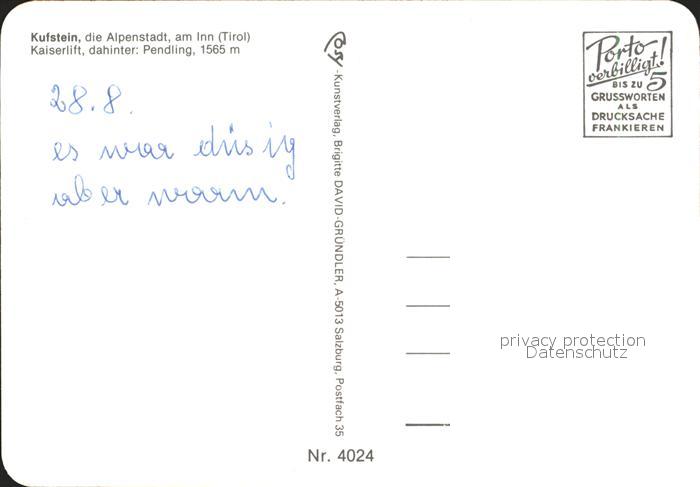 Kufstein, die Alpenstadt, am Inn (Tirol)
Kaiserlift, dahinter: Pendling, 1565 m
28.8.
es war düsig
aber warm.
-Kunstverlag, Brigitte DAVID-GRÜNDLER, A-5013 Salzburg, Postfach 35
Porto
verbilligt!
BIS ZU 5
GRUSSWORTEN
ALS
DRUCKSACHE
FRANKIEREN
privacy protection
Datenschutz
Nr. 4024